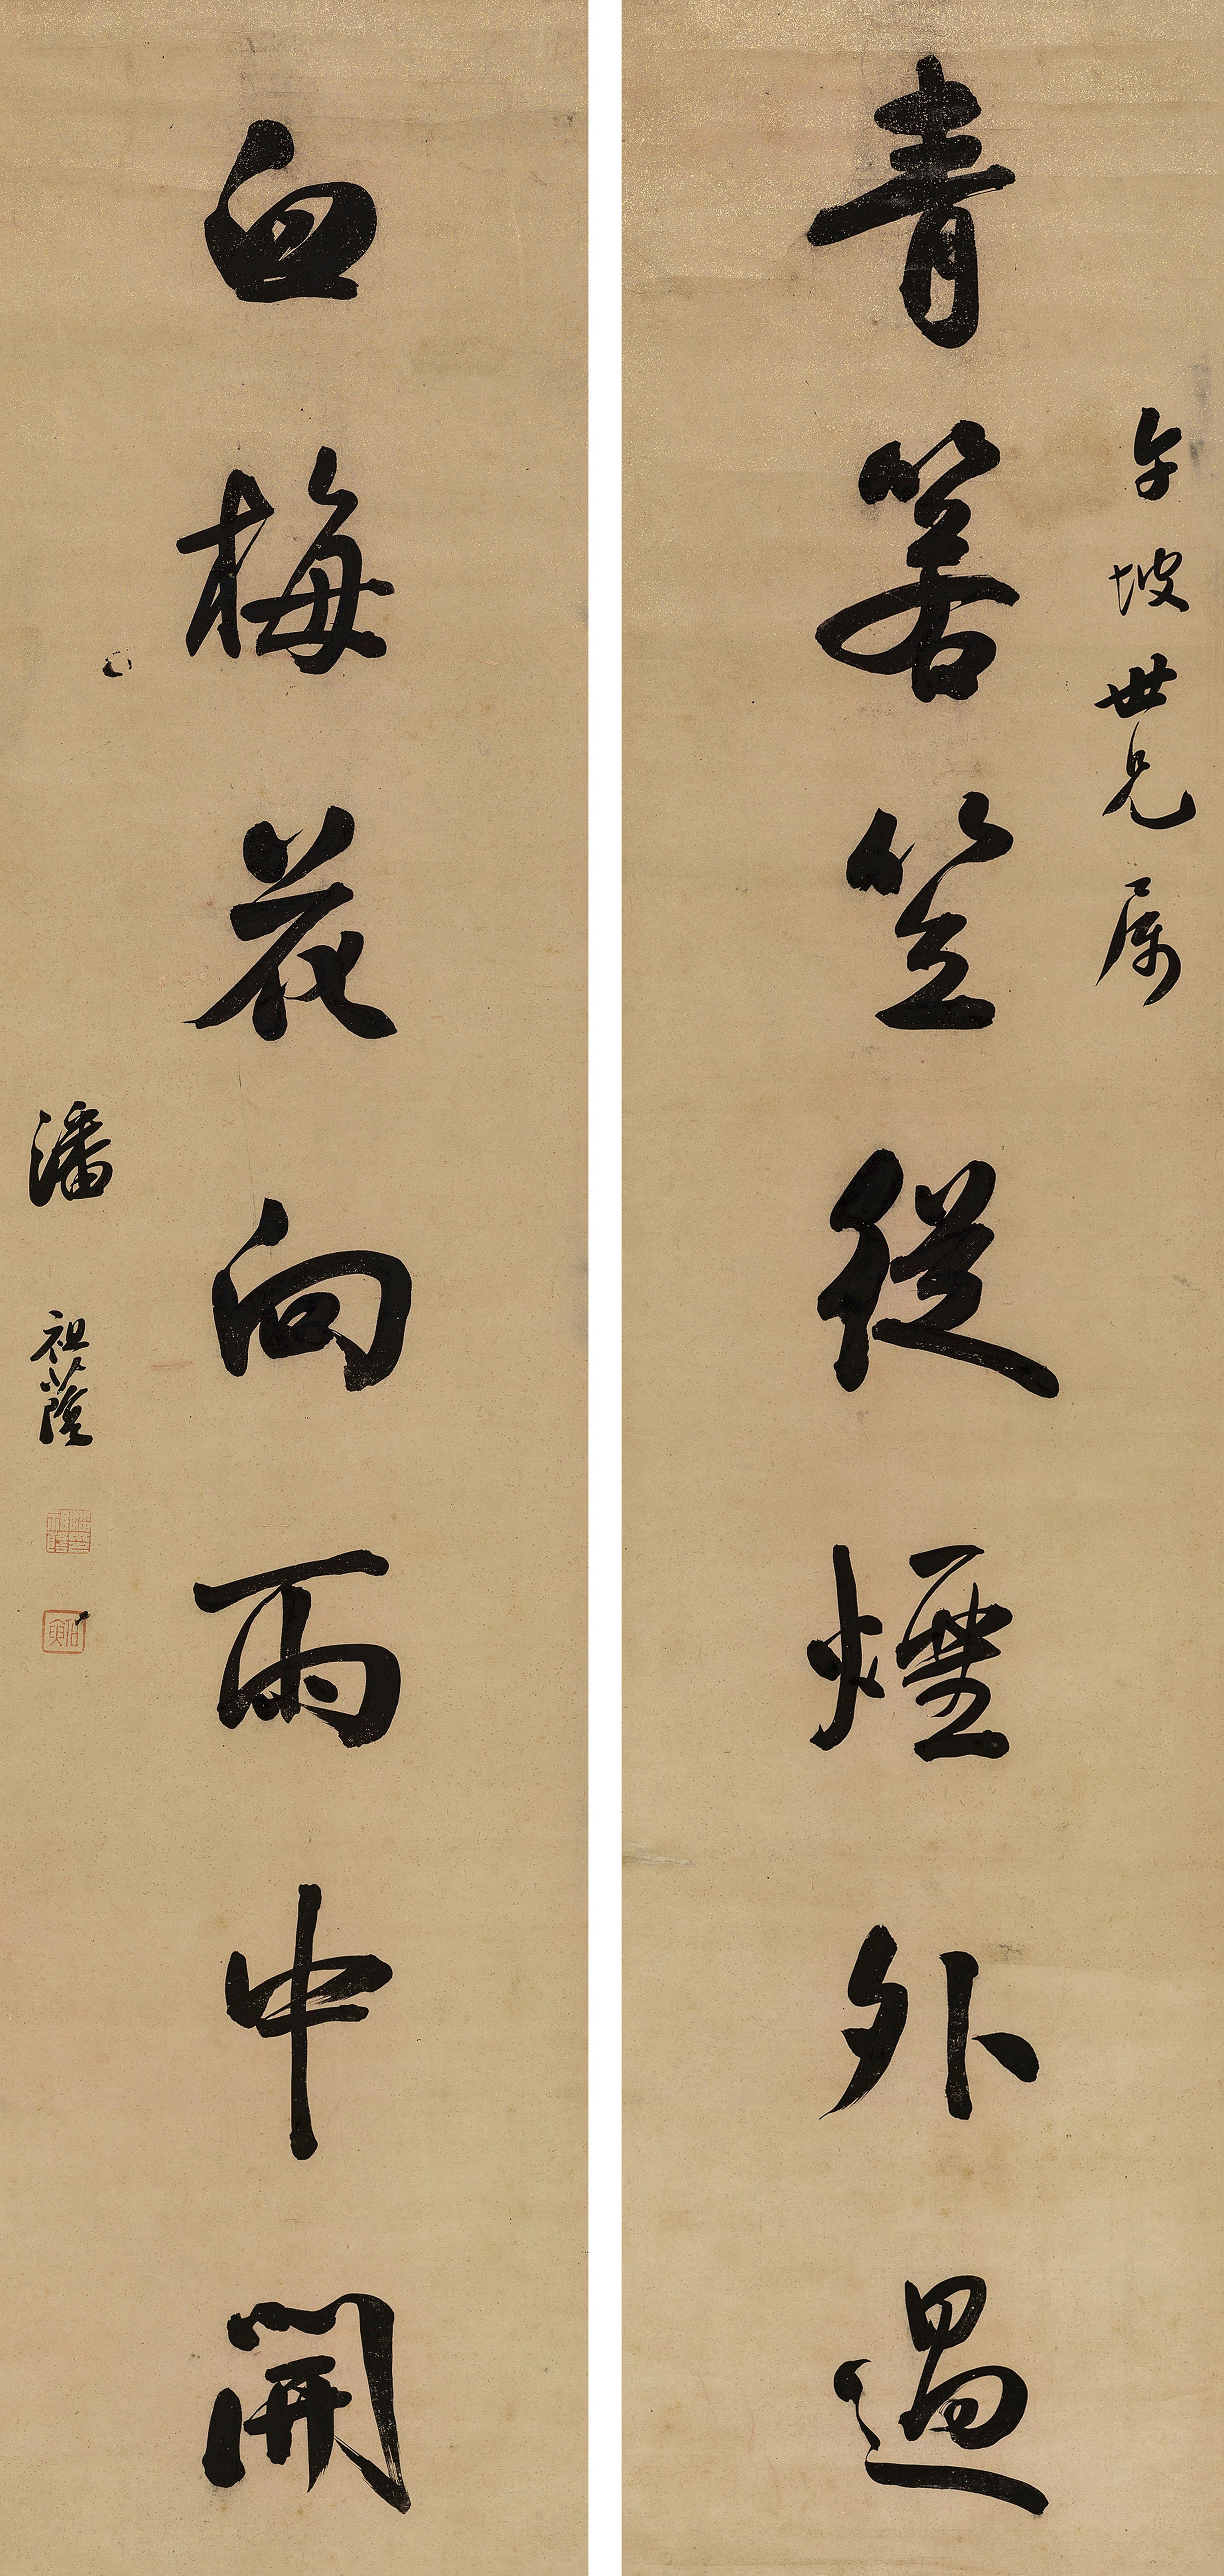 午坡世兄属
青箬笠從煙外過
白梅花向雨中開
潘祖蔭
伯寅